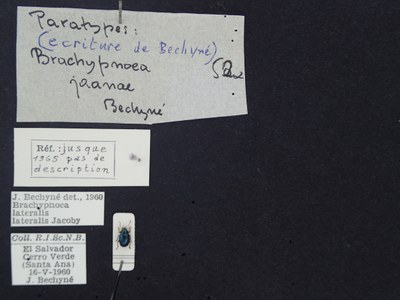 Paratype:
(ecriture de Bechyné)
Brachypnoea
jaanae
Bechyné
Réf.: jusque
1965 pas de
description
J. Bechyné det., 1960
Brachypnoea
lateralis
lateralis Jacoby
Coll. R.I.Sc.N.B.
El Salvador
Cerro Verde
(Santa Ana)
16-V-1960
J. Bechyné